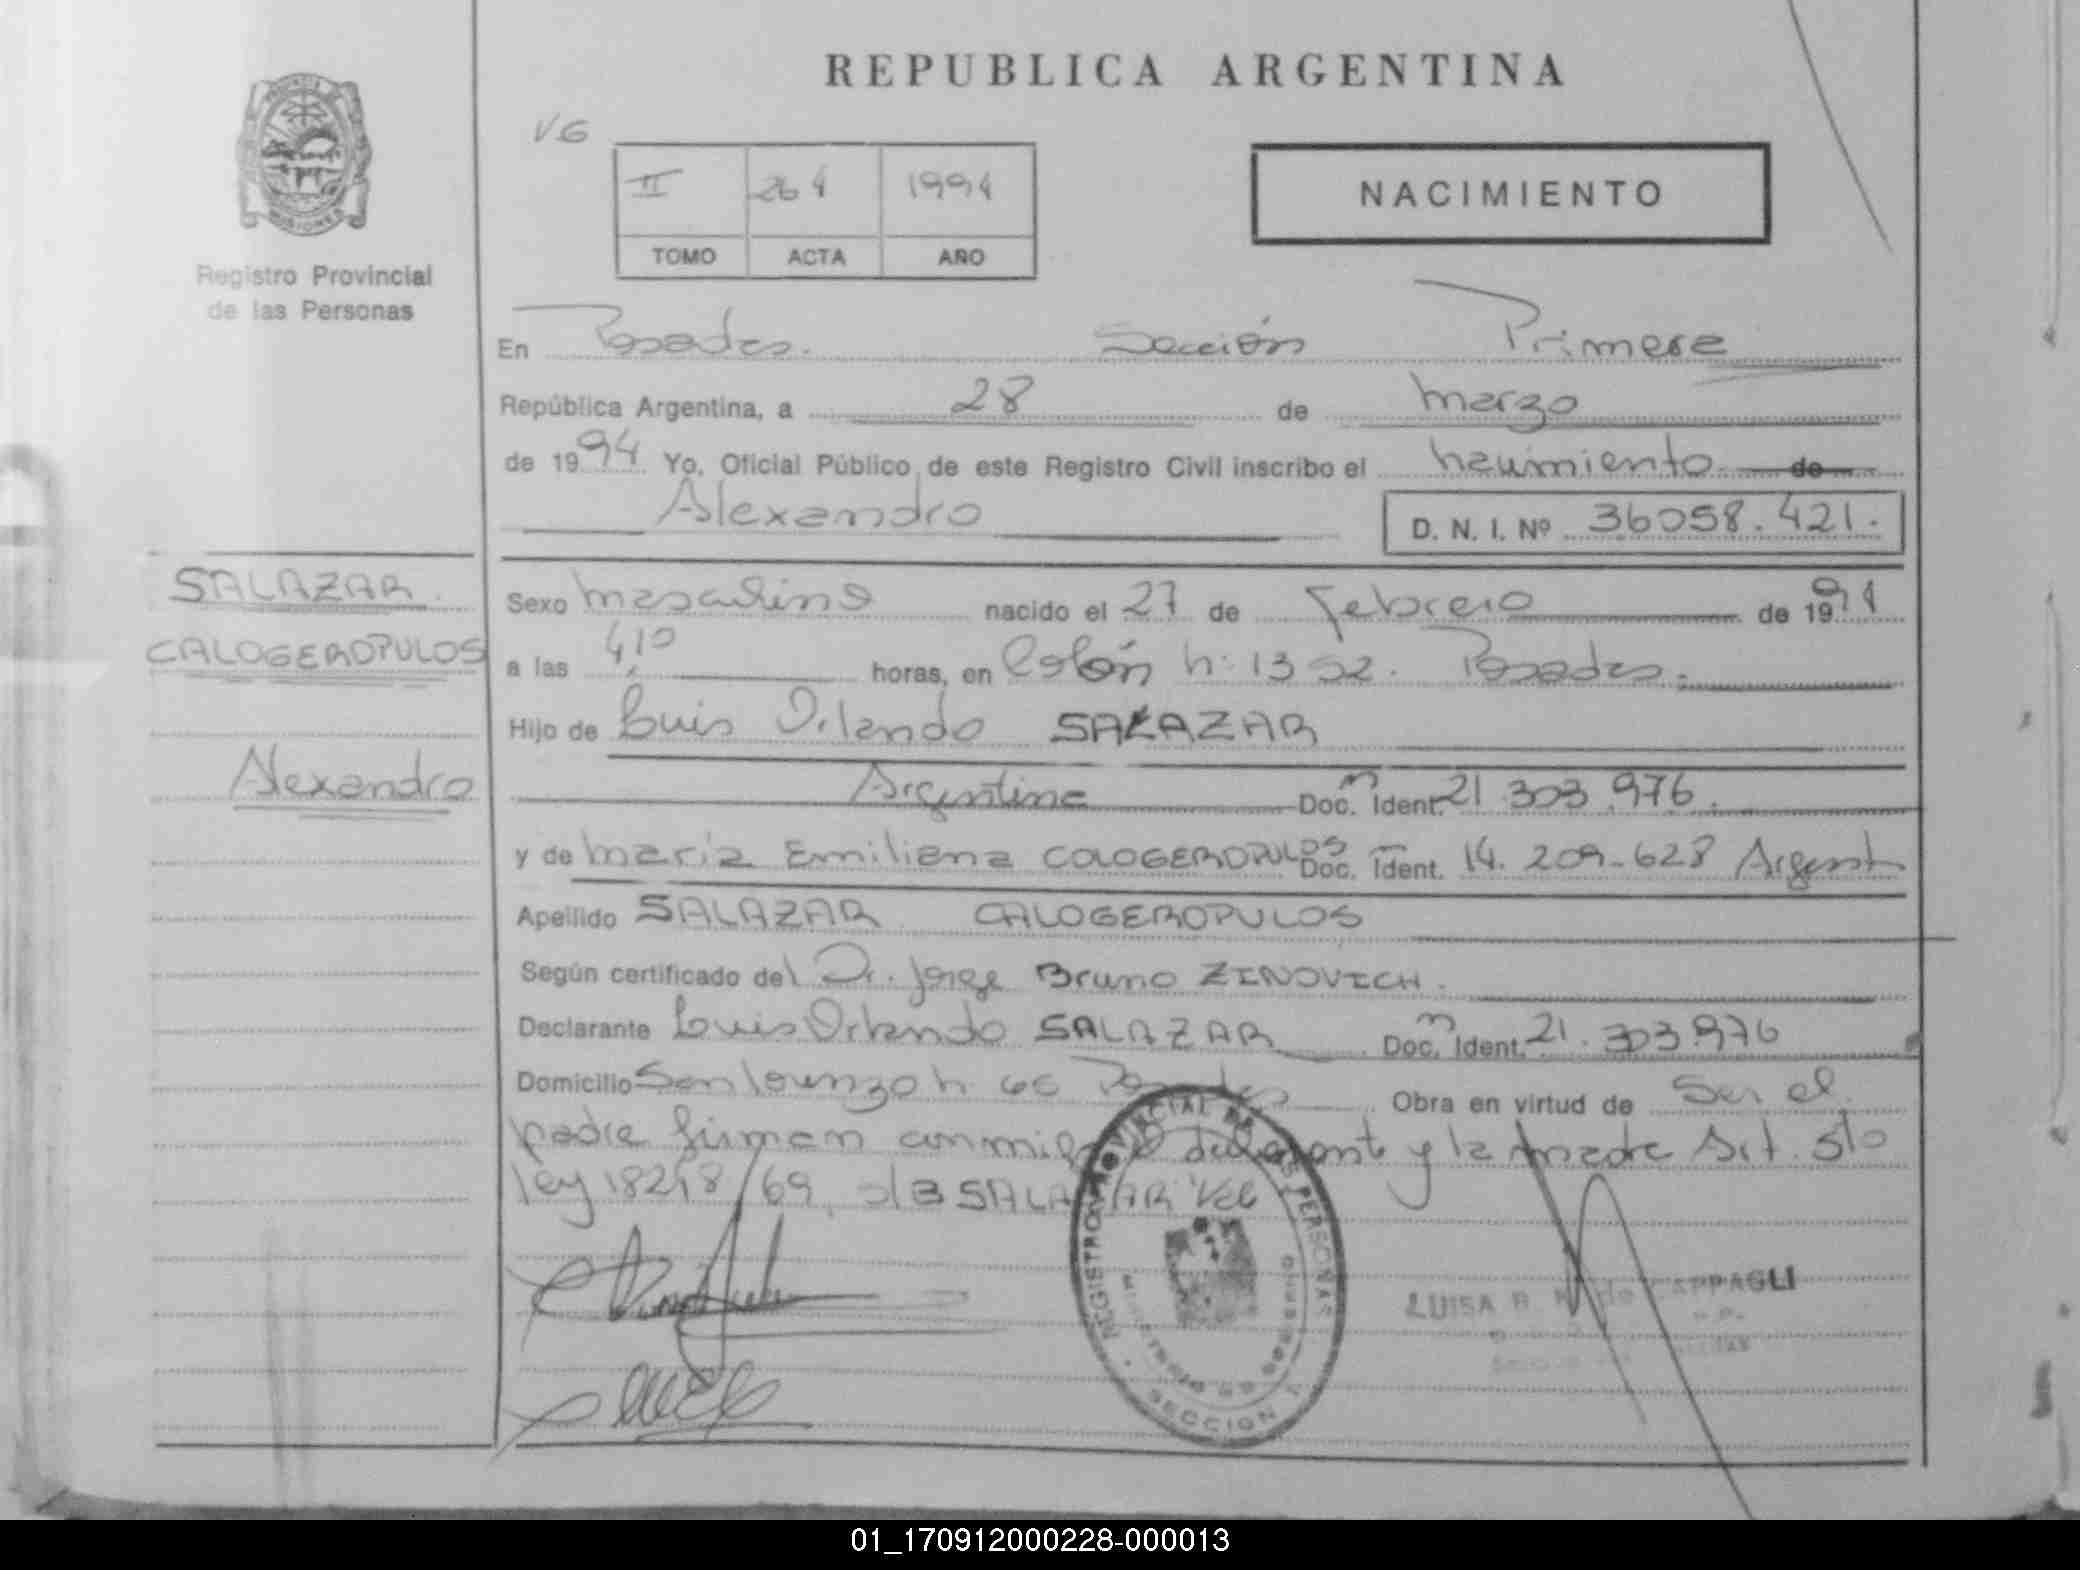 REPUBLICA ARGENTINA
VG
II 264 1994
TOMO ACTA AÑO
NACIMIENTO
Registro Provincial
de las Personas
En Posadas. Sección Primera
República Argentina, a 28 de marzo
de 1994 Yo, Oficial Público de este Registro Civil inscribo el nacimiento de
Alexandro
D. N. I. Nº 36058.421.
SALAZAR
CALOGEROPULOS
Alexandro
Sexo masculino nacido el 27 de Febrero de 1994
a las 4,10 horas, en Colón n: 1352. Posadas.
Hijo de Luis Orlando SALAZAR
Argentino Doc. Ident. 21.303.976.
y de María Emiliana CALOGEROPULOS Doc. Ident. 14.209.628 Argent
Apellido SALAZAR CALOGEROPULOS
Según certificado del Dr. Jorge Bruno ZINOVICH.
Declarante Luis Orlando SALAZAR Doc. Ident. 21.303.976
Domicilio San Lorenzo n: Posadas Obra en virtud de Ser el
padre firman conmigo el declarante y la madre Art. 5to
ley 18248/69, SALAZAR Vel
REGISTRO PROVINCIAL DE LAS PERSONAS
MINISTERIO DE GOBIERNO
SECCION 1
LUISA de CAPPAGLI
01_170912000228-000013